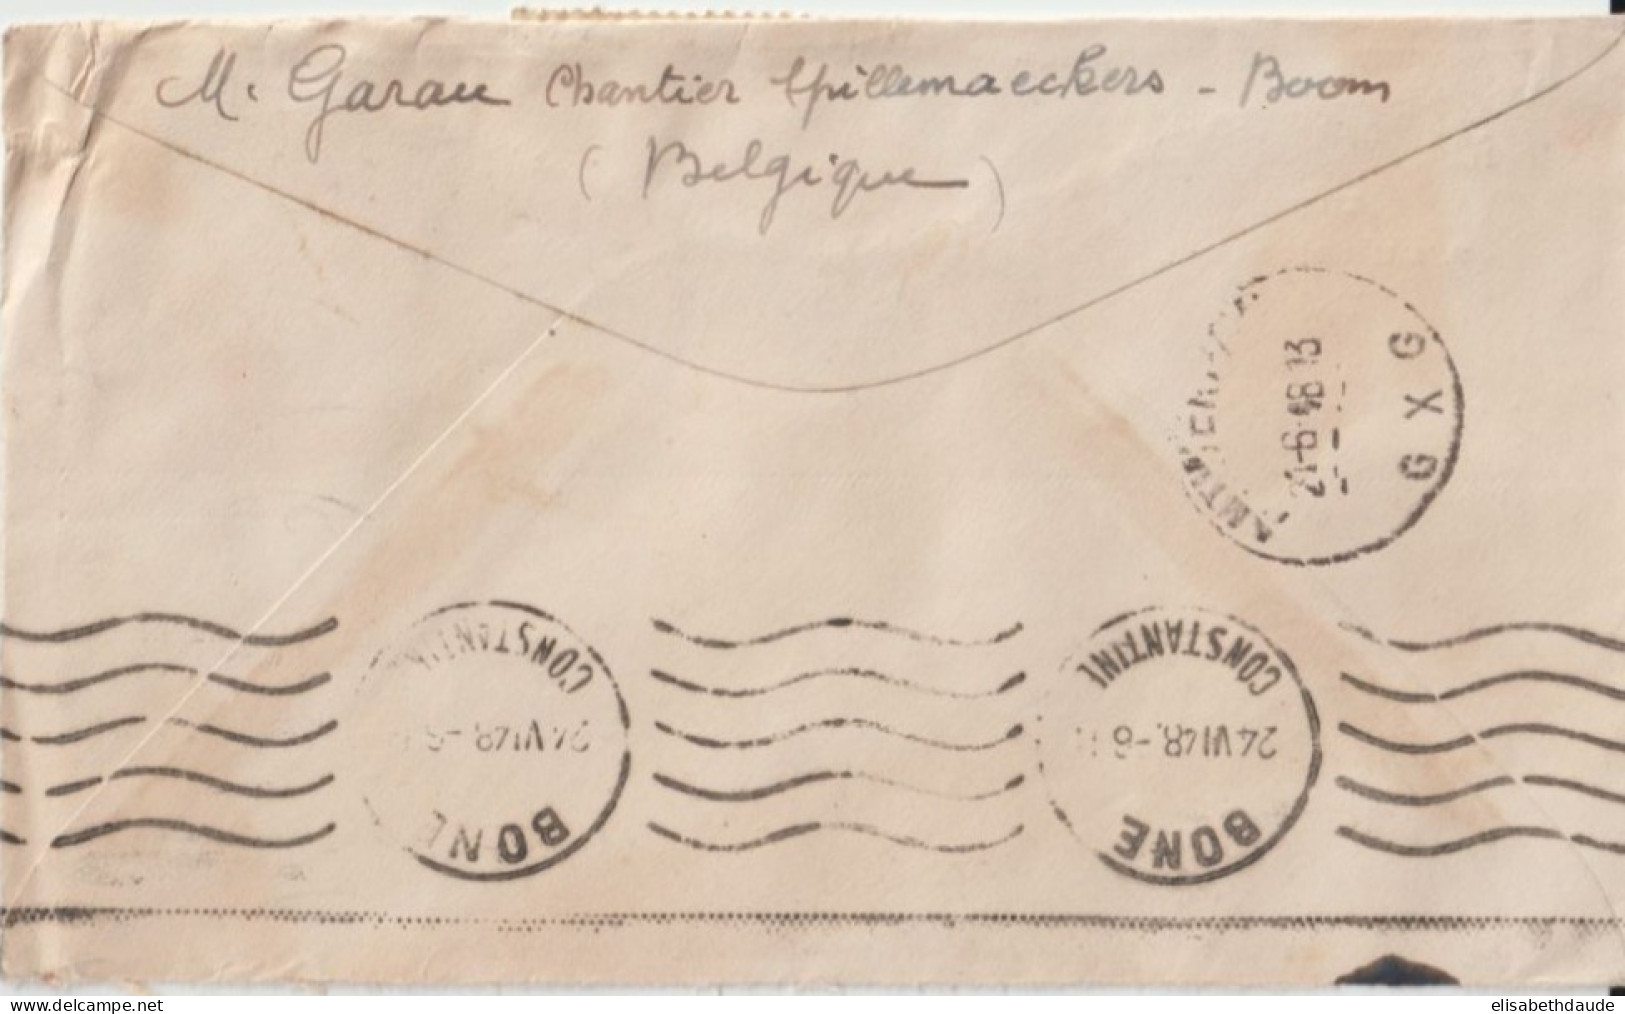 M. Garau Chantier Spillemaeckers - Boom
( Belgique )
G X G
21-6-48 13
CONSTANTINE
24 VI 48 - 6
BONE
CONSTANTINE
24 VI 48 - 6
BONE
www.delcampe.net
elisabethdaude